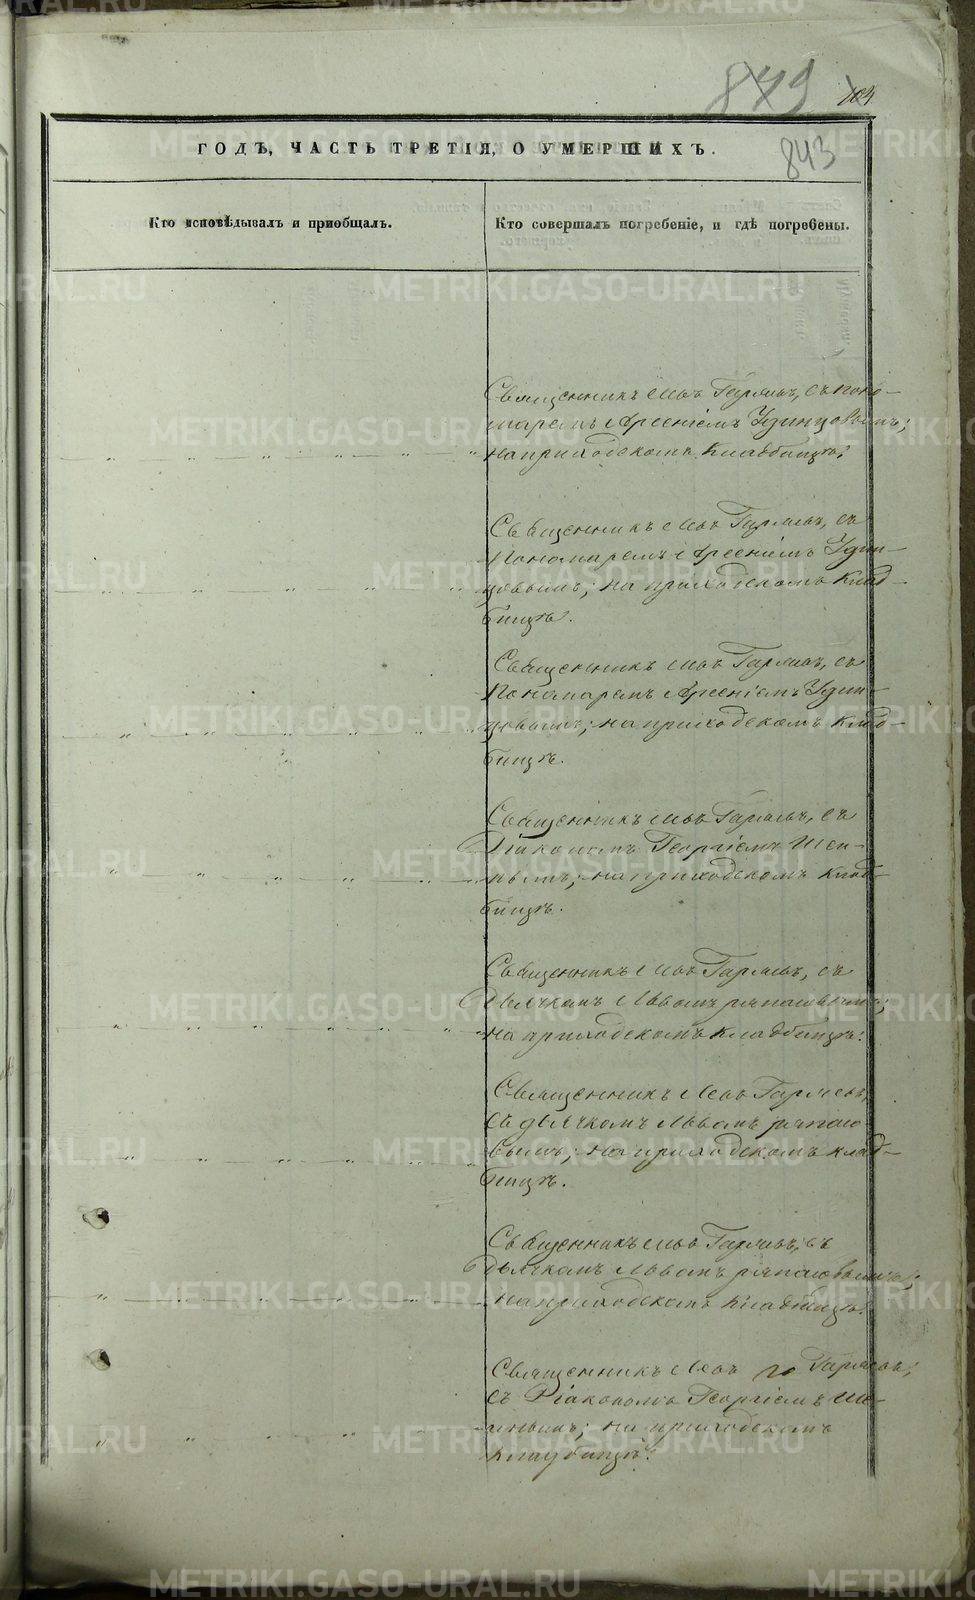 879
843
ГОДЪ, ЧАСТЬ ТРЕТІЯ, О УМЕРШИХЪ.
Кто исповѣдывалъ и пріобщалъ.
Кто совершалъ погребеніе, и гдѣ погребены.
Священникъ Левъ Гаряевъ, съ поно-
маремъ Арсеніемъ Удинцовымъ;
на приходскомъ кладбищѣ.
Священникъ Левъ Гаряевъ, съ
Пономаремъ Арсеніемъ Удин-
цовымъ; на приходскомъ клад-
бищѣ.
Священникъ Левъ Гаряевъ, съ
Пономаремъ Арсеніемъ Удин-
цовымъ; на приходскомъ клад-
бищѣ.
Священникъ Левъ Гаряевъ, съ
Діакономъ Георгіемъ
на приходскомъ клад-
бищѣ.
Священникъ Левъ Гаряевъ, съ
Дьячкомъ Львомъ
на приходскомъ кладбищѣ.
Священникъ Левъ Гаряевъ,
съ дьячкомъ Львомъ
на приходскомъ клад-
бищѣ.
Священникъ Левъ Гаряевъ, съ
дьячкомъ Львомъ
на приходскомъ кладбищѣ.
Священникъ Левъ Гаряевъ,
съ Діакономъ Георгіемъ
на приходскомъ
кладбищѣ.
METRIKI.GASO-URAL.RU